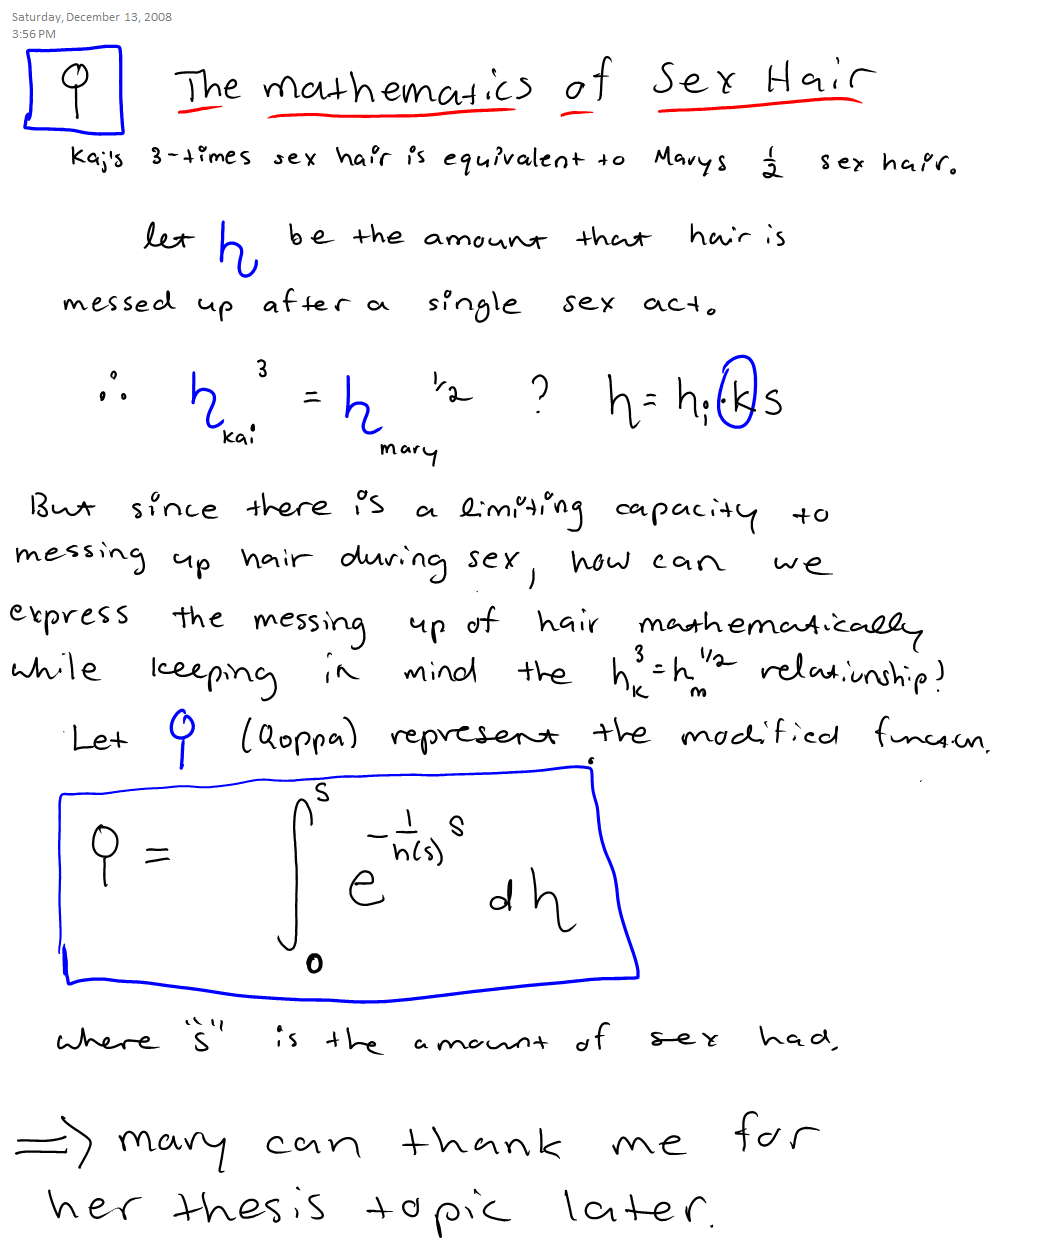 Saturday, December 13, 2008
3:56 PM
ϙ The mathematics of Sex Hair
Kaj's 3-times sex hair is equivalent to Marys 1/2 sex hair.
let h be the amount that hair is
messed up after a single sex act.
∴ h_kai^3 = h_mary^1/2 ? h = h_i·ks
But since there is a limiting capacity to
messing up hair during sex, how can we
express the messing up of hair mathematically
while keeping in mind the h_k^3 = h_m^1/2 relationship?
Let ϙ (Qoppa) represent the modified function.
ϙ = ∫_0^s e^(-1/h(s) s) dh
where "s" is the amount of sex had.
⇒ mary can thank me for
her thesis topic later.